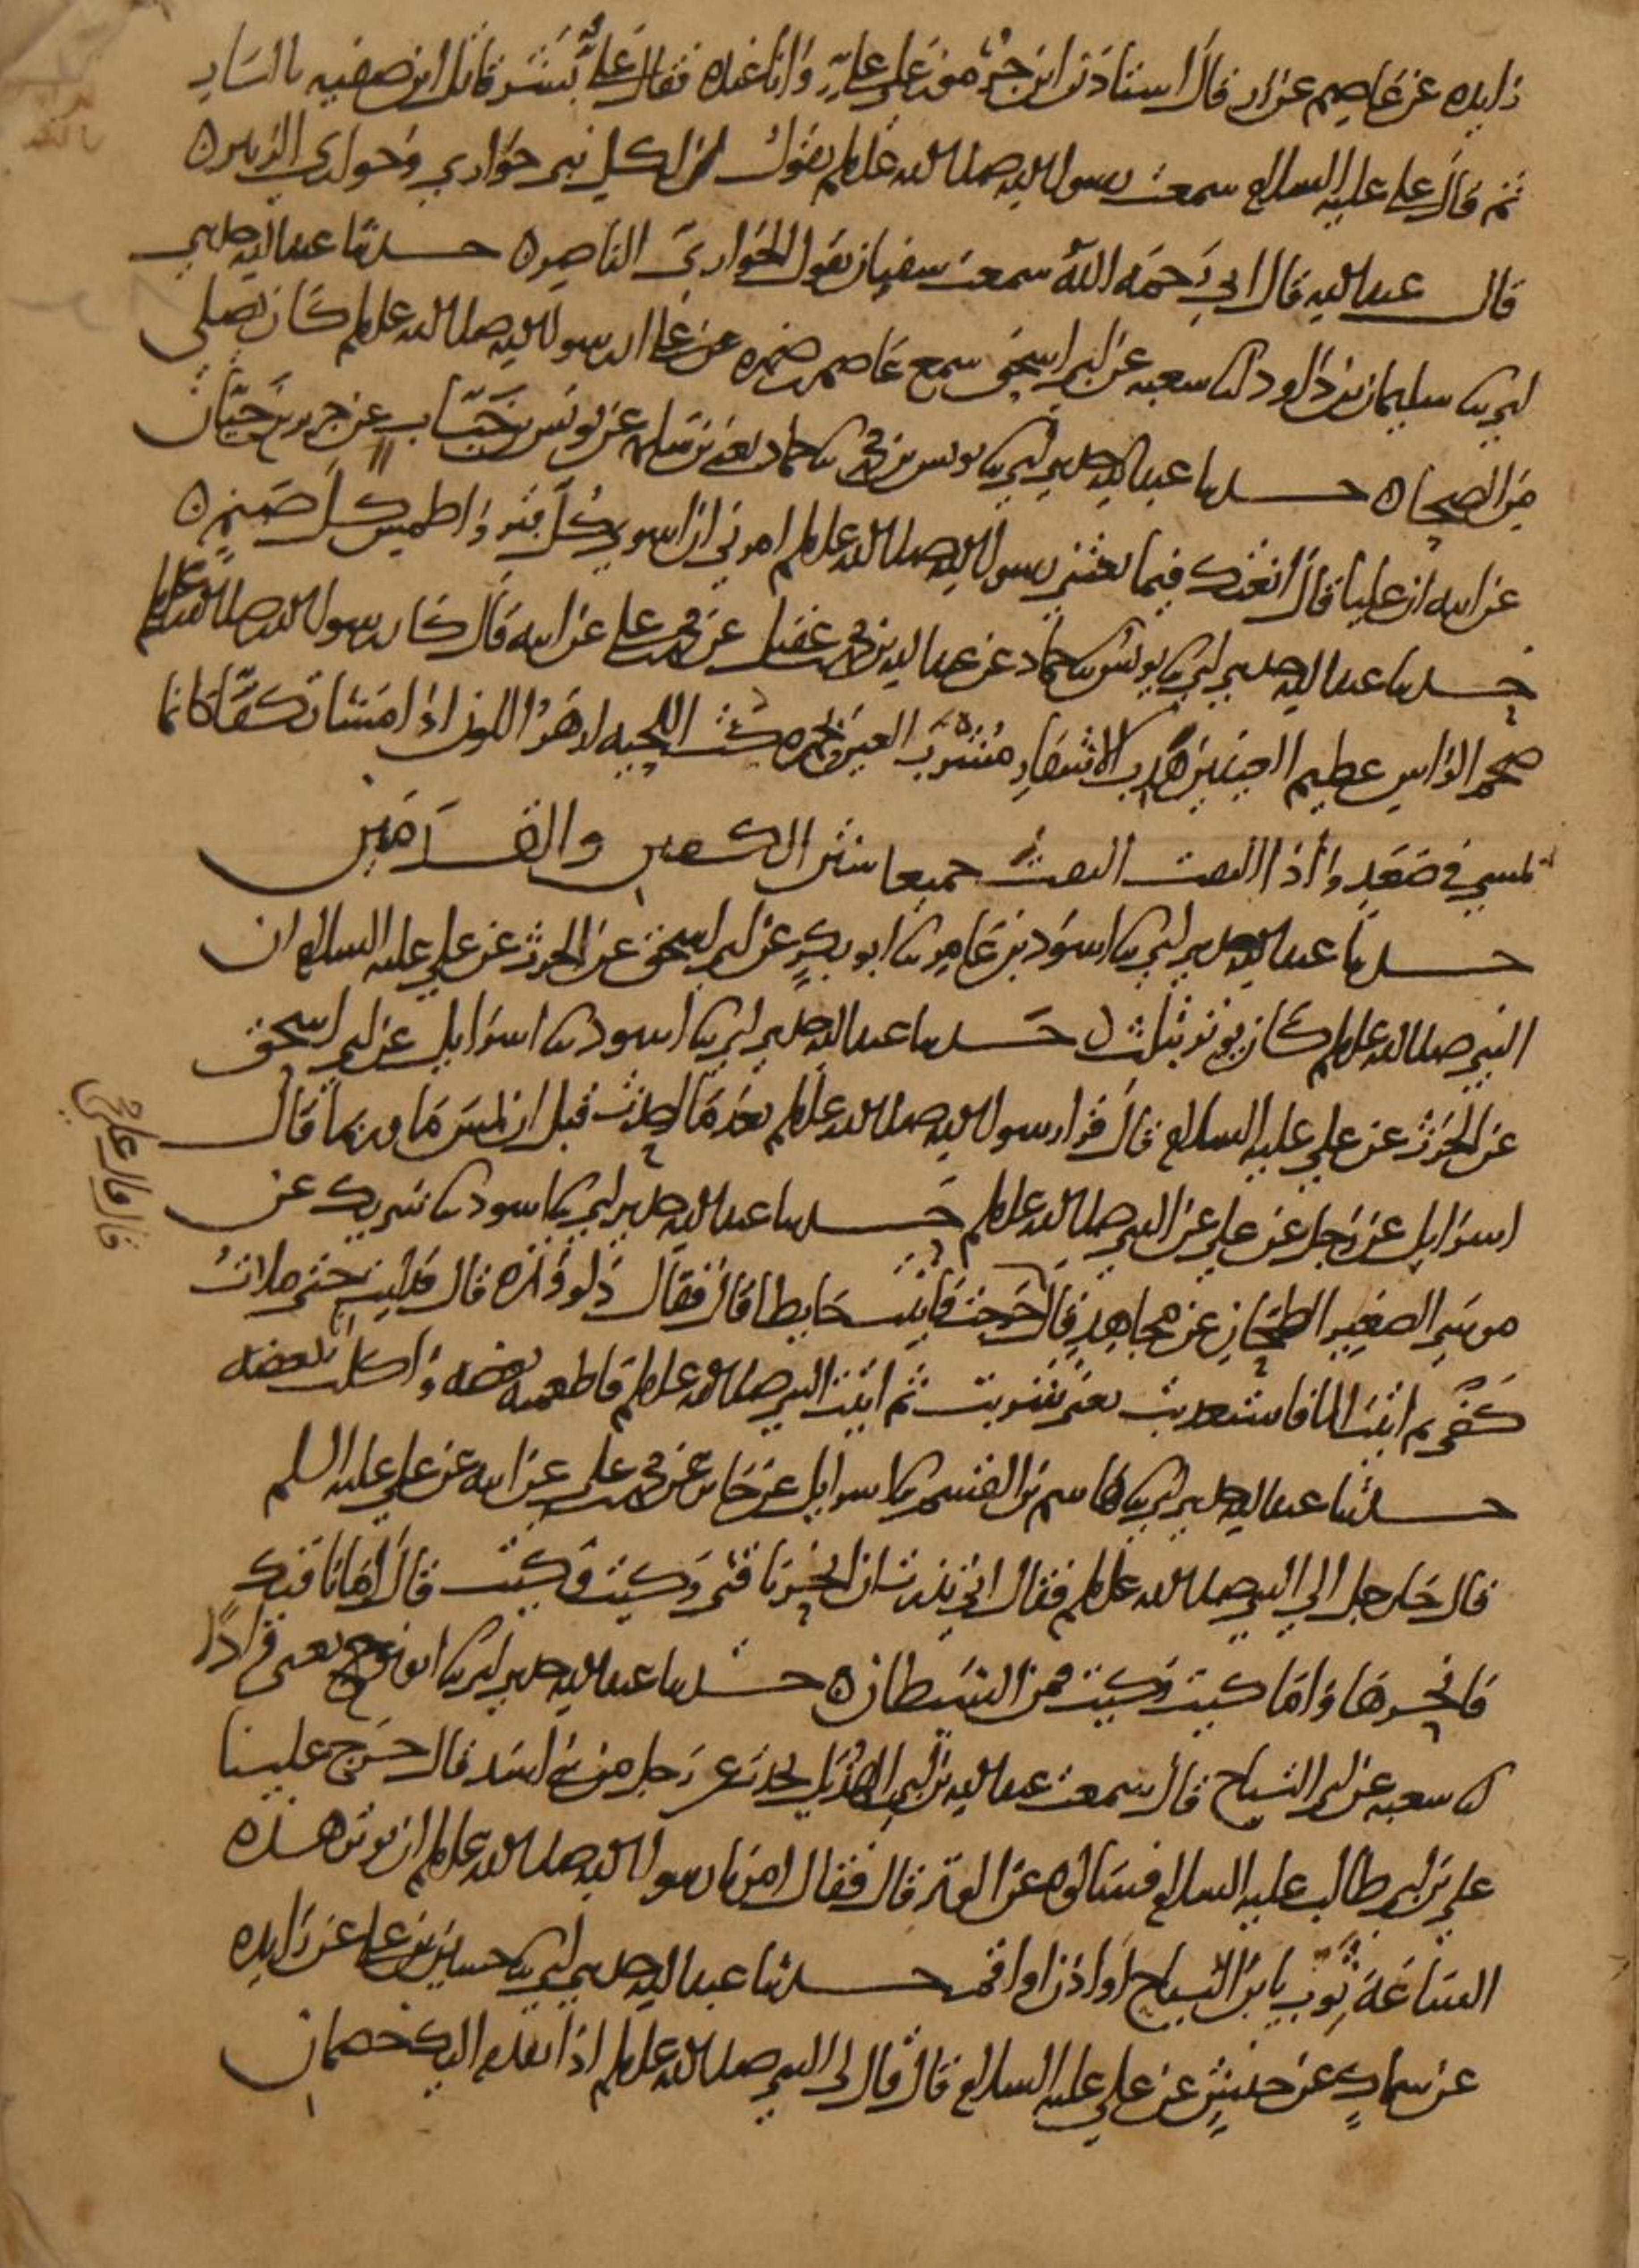 زايده عن عاصم عن زر قال استاذن ابن جرموز على علي وانا عنده فقال علي بشر قاتل ابن صفيه بالنار
ثم قال علي عليه السلام سمعت رسول الله صلى الله عليه وسلم يقول ان لكل نبي حواري وحواري الزبير ه
قال عبد الله قال ابي رحمه الله سمعت سفيان يقول الحواري الناصر ه حدثنا عبد الله حدثني
ابي نا سليمان بن داود انا شعبه عن ابي اسحق سمع عاصم بن ضمره عن علي ان رسول الله صلى الله عليه وسلم كان يصلي
من الضحى ه حدثنا عبد الله حدثني ابي نا يونس بن محمد نا حماد يعني بن سلمه عن يونس بن خباب عن جرير بن حيان
عن ابيه ان عليا قال ابعثك فيما بعثني رسول الله صلى الله عليه وسلم امرني ان اسوي كل قبر واطمس كل صنم ه
حدثنا عبد الله حدثني ابي نا يونس نا حماد عن عبد الله بن محمد بن عقيل عن محمد بن علي عن ابيه قال كان رسول الله صلى الله عليه وسلم
ضخم الراس عظيم العينين هدب الاشفار مشرب العين حمره كث اللحيه ازهر اللون اذا مشى تكفا كانما
يمشي في صعد واذا التفت التفت جميعا شثن الكفين والقدمين
حدثنا عبد الله حدثني ابي نا اسود بن عامر نا ابو بكر عن ابي اسحق عن الحرث عن علي عليه السلام ان
النبي صلى الله عليه وسلم كان يوتر بثلث ه حدثنا عبد الله حدثني ابي نا اسود نا اسرايل عن ابي اسحق
عن الحرث عن علي عليه السلام قال قرا رسول الله صلى الله عليه وسلم بعد ما احدث قبل ان يمس ما وربما قال
اسرايل عن رجل عن علي عن النبي صلى الله عليه وسلم حدثنا عبد الله حدثني ابي نا اسود نا شريك عن
قال قال علي خرجت
موسى الصغير الطحان عن مجاهد قال خرجت فاتيت حايطا قال فقال دلو وتمره قال فدليت حتى ملات
كفي ثم اتيت الما فاستعذبت يعني شربت ثم اتيت النبي صلى الله عليه وسلم فاطعمته بعضه واكلت بعضه
حدثنا عبد الله حدثني ابي نا هاسم بن القسم نا اسرايل عن جابر عن محمد بن علي عن ابيه عن علي عليه السلم
قال جا رجل الى النبي صلى الله عليه وسلم فقال اني نذرت ان انحر ناقتي وكيت وكيت قال اما ناقتك
فانحرها واما كيت وكيت فمن الشيطان ه حدثنا عبد الله حدثني ابي نا ابو نوح يعني قرادا
انا شعبه عن ابي التياح قال سمعت عبد الله بن ابي الهذيل يحدث عن رجل من بني اسد قال خرج علينا
علي بن ابي طالب عليه السلام فسالوه عن الوتر قال فقال امرنا رسول الله صلى الله عليه وسلم ان نوتر هذه
الساعة ثوب يا بن التياح او اذن او اقم حدثنا عبد الله حدثني ابي نا حسين بن علي عن زايده
عن سماك عن حنش عن علي عليه السلام قال قال لي النبي صلى الله عليه وسلم اذا تقدم اليك خصمان